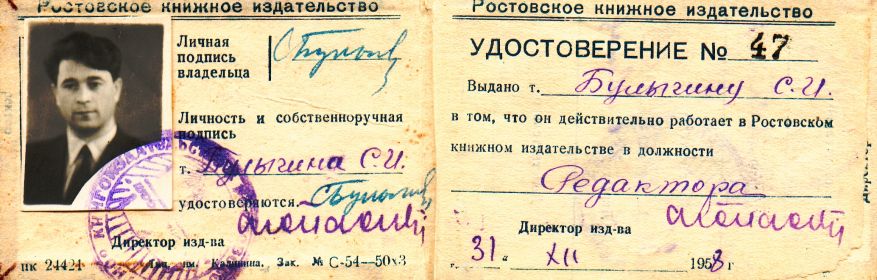 Ростовское книжное издательство
Личная
подпись
владельца
СБулыгин
Личность и собственноручная
подпись
т. Булыгина С.И.
удостоверяются.
СБулыгин
Директор изд-ва
пк 24424
Тип. им. Калинина. Зак. № С-54—50х3
Ростовское книжное издательство
УДОСТОВЕРЕНИЕ № 47
Выдано т. Булыгину С.И.
в том, что он действительно работает в Ростовском
книжном издательстве в должности
Редактора
Директор изд-ва
„31“ XII 1958 г.